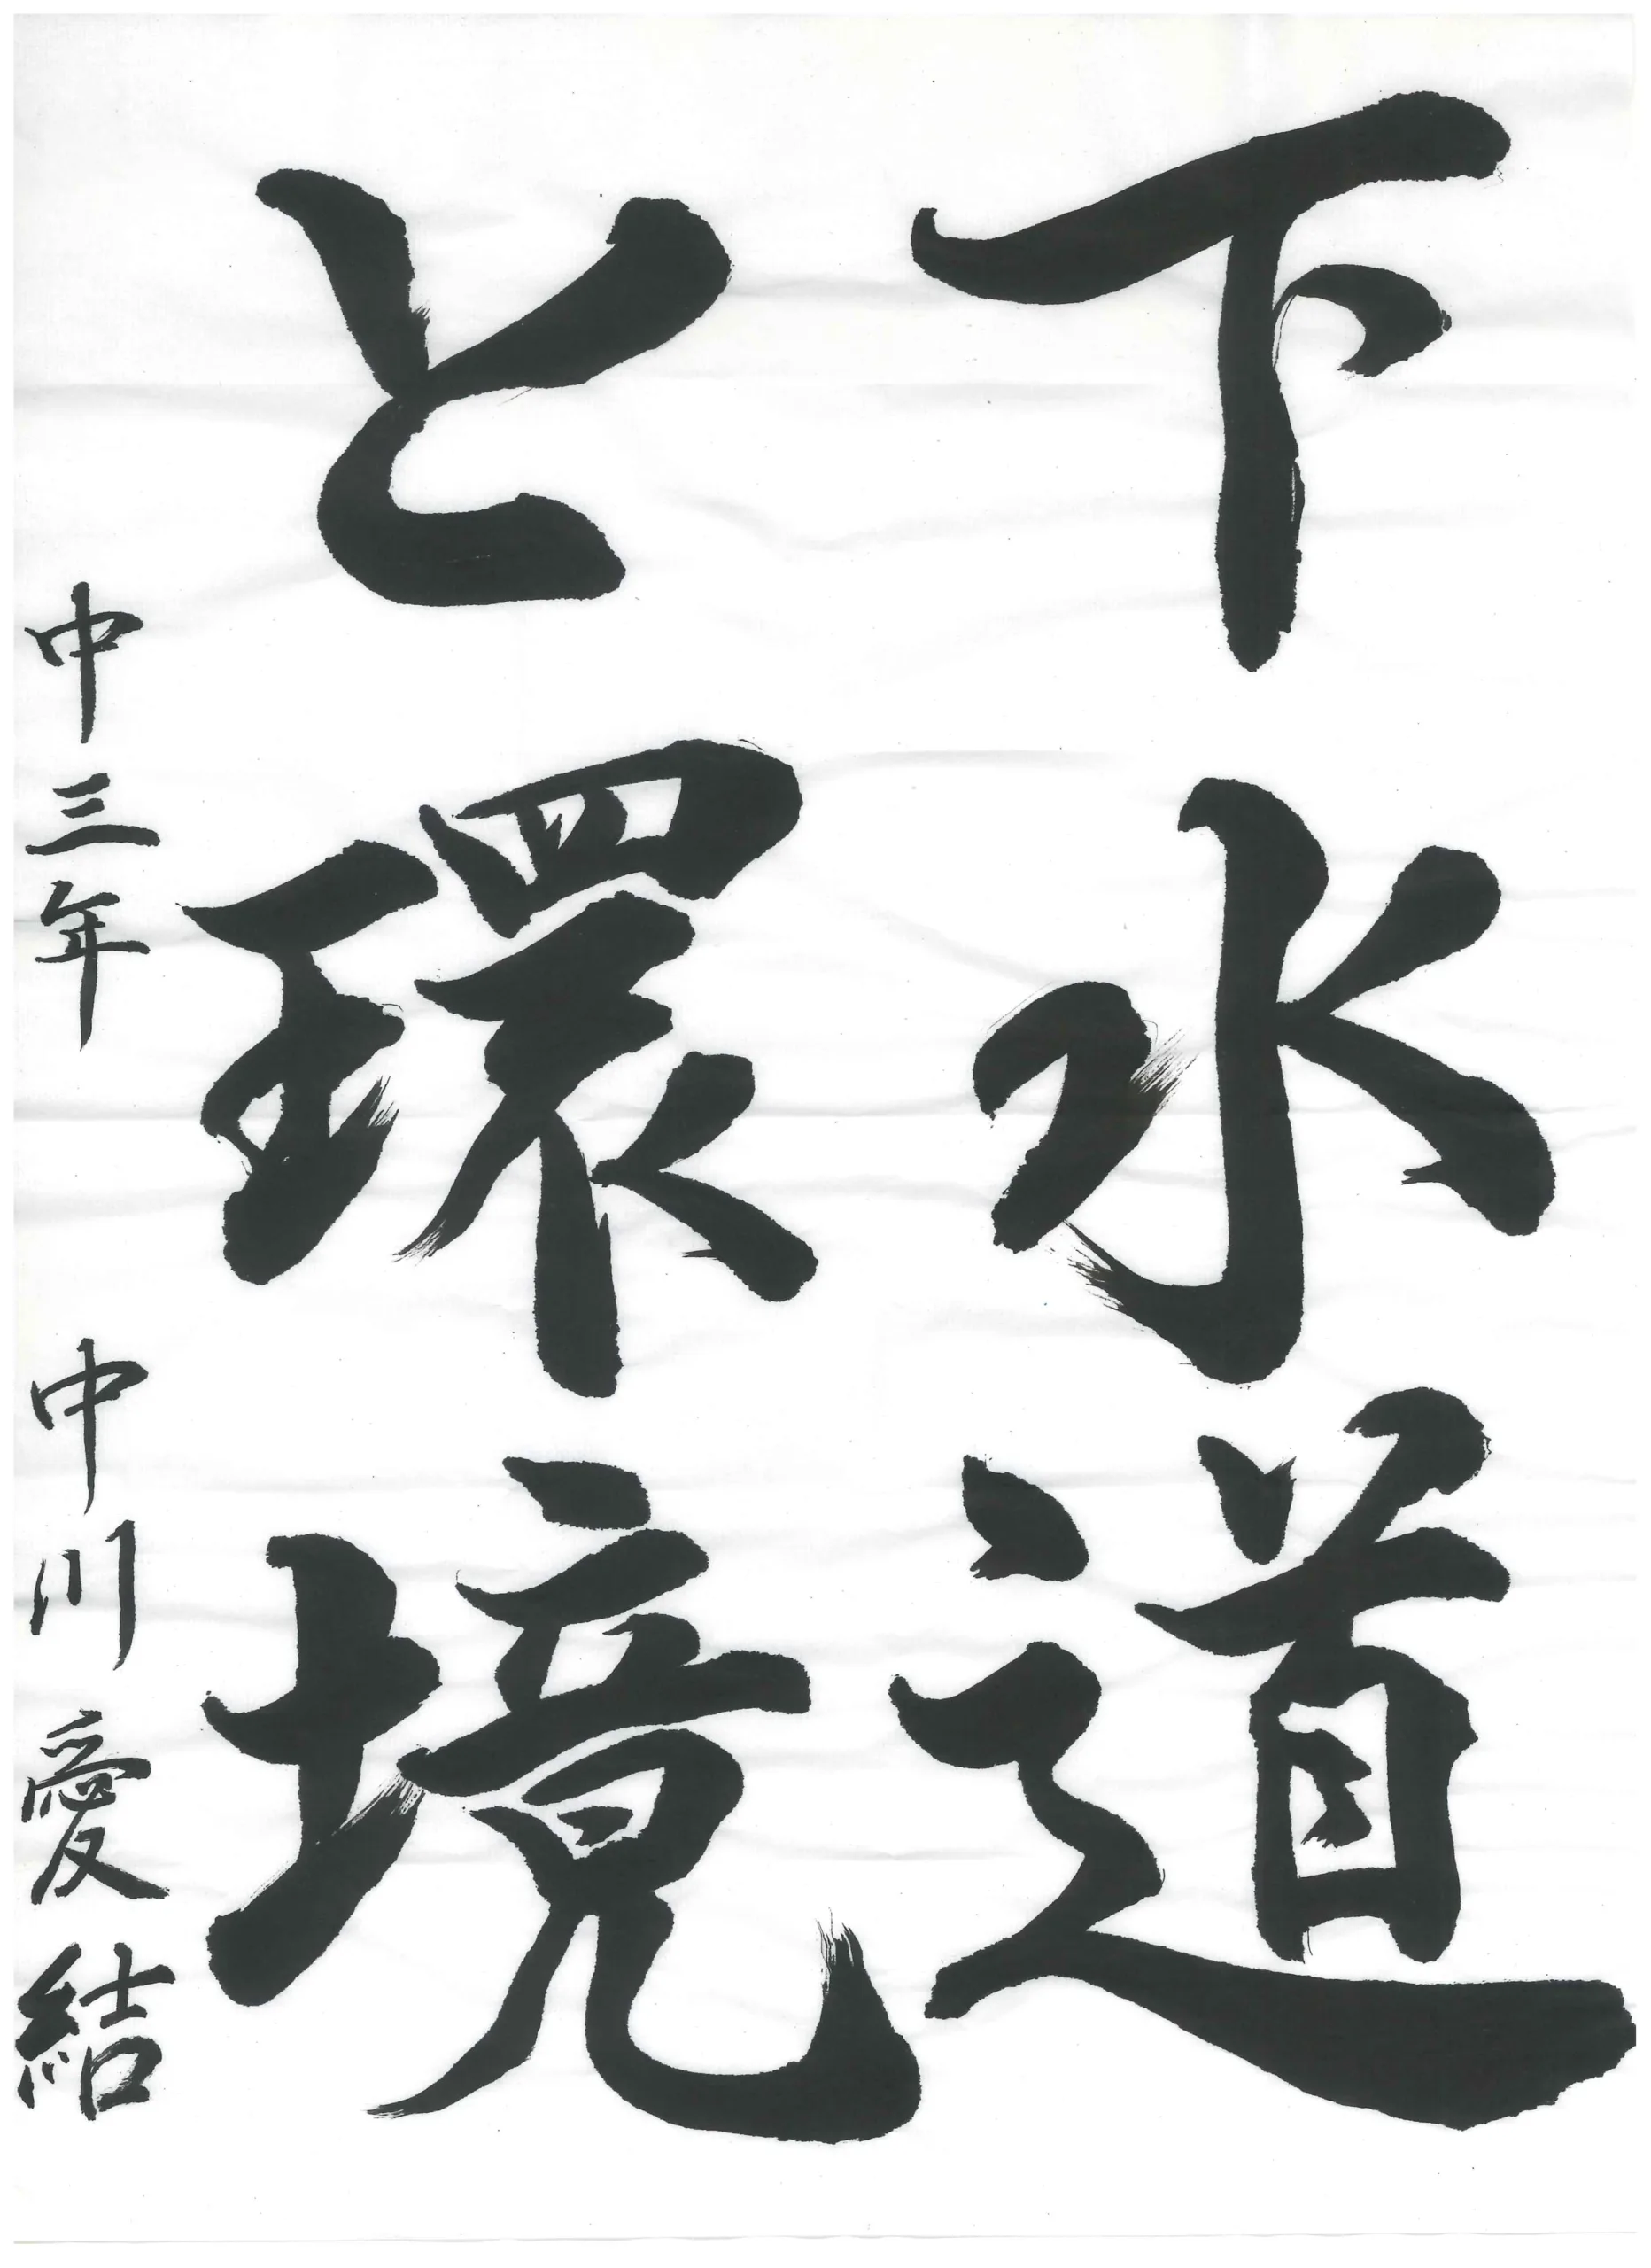 下水道
と環境
中三年 中川愛結